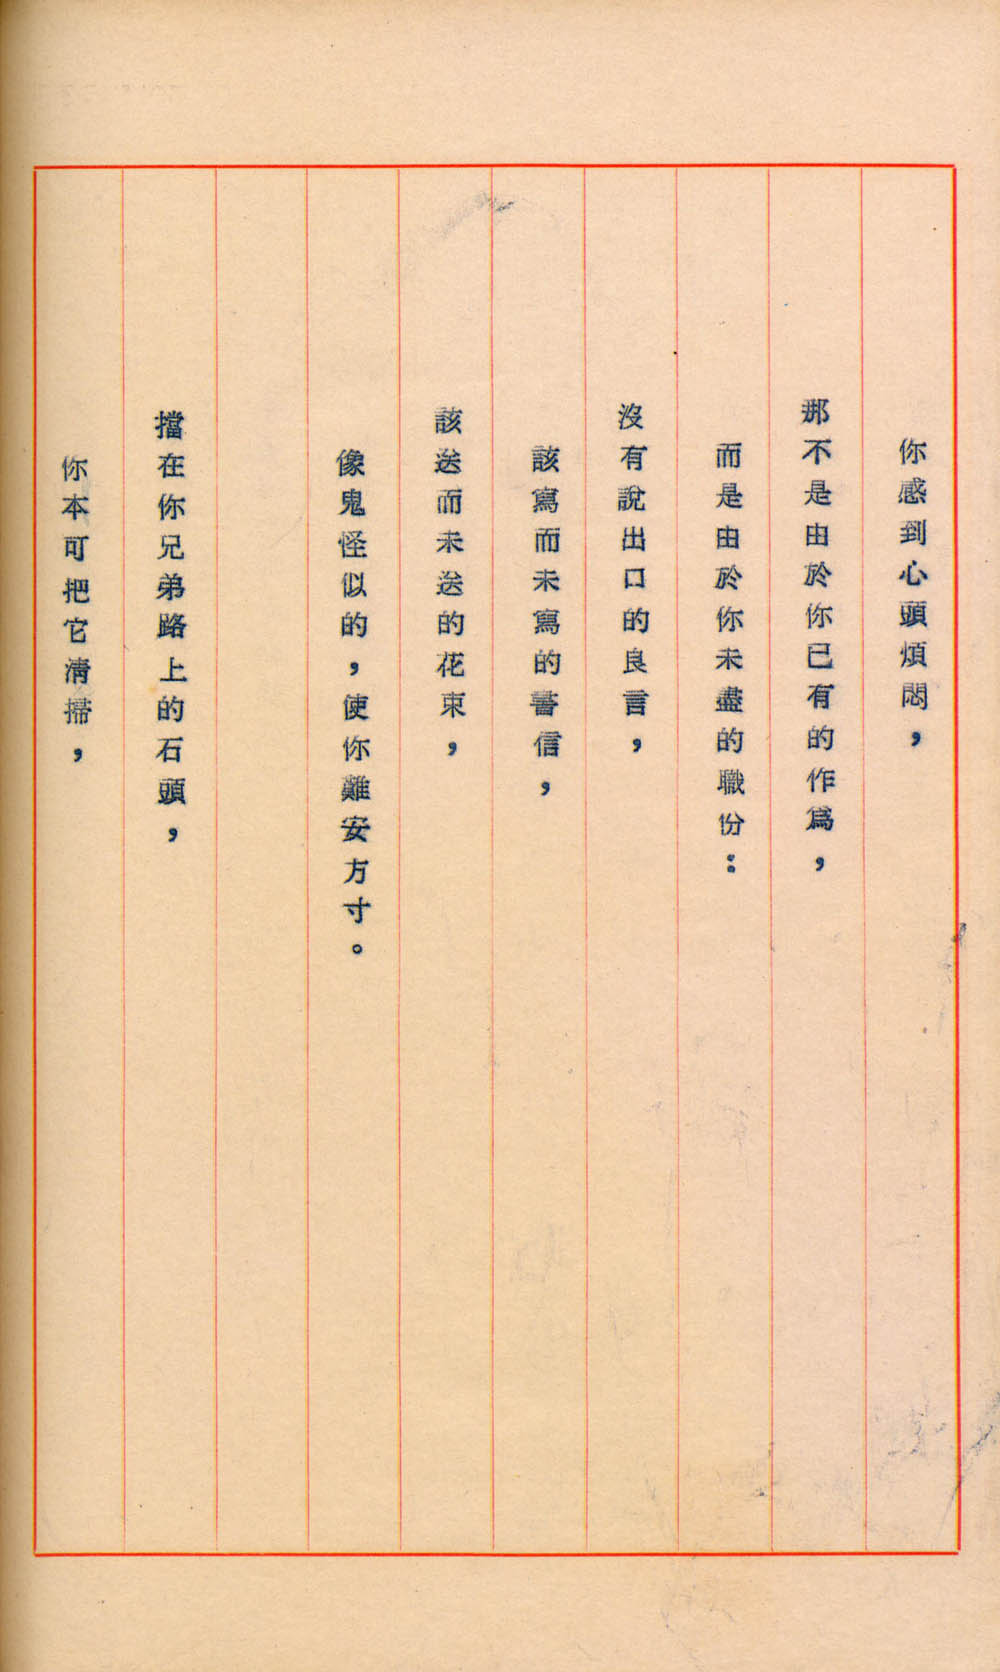 你感到心頭煩悶，
那不是由於你已有的作爲，
而是由於你未盡的職份：
沒有說出口的良言，
該寫而未寫的書信，
該送而未送的花束，
像鬼怪似的，使你難安方寸。
擋在你兄弟路上的石頭，
你本可把它清掃，